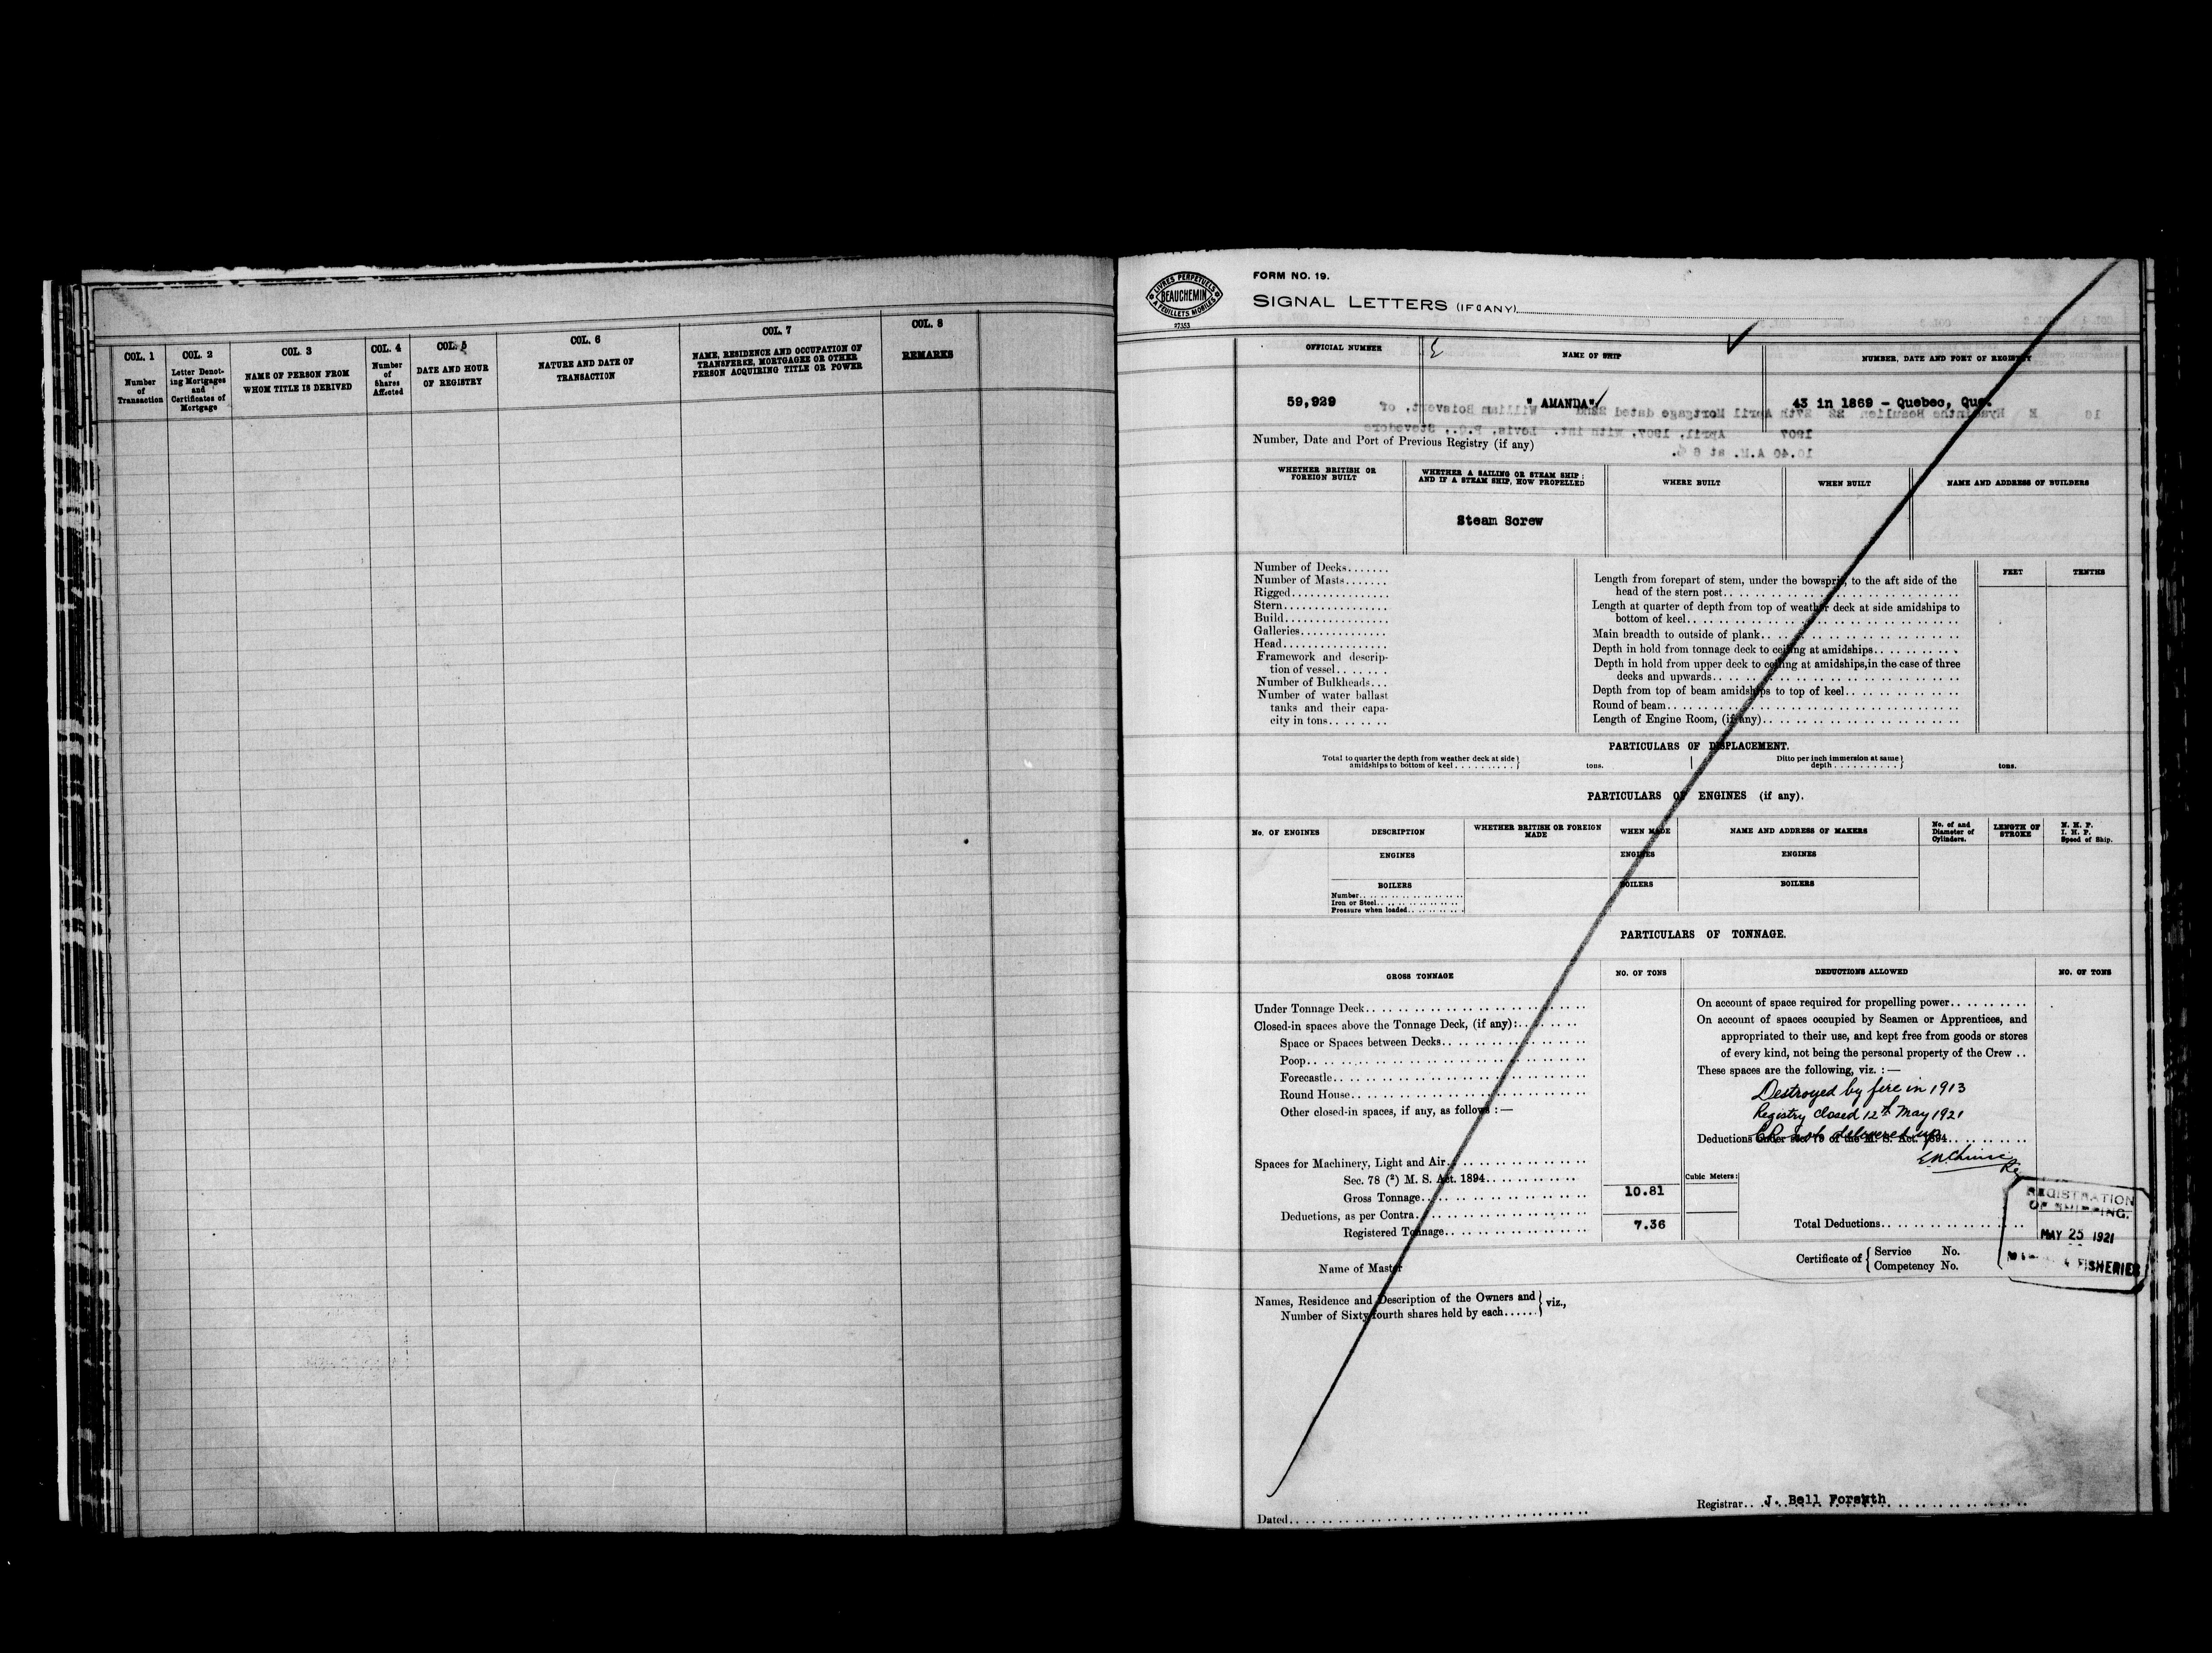 COL. 1
Number
of
Transaction
COL. 2
Letter Denot-
ing Mortgages
and
Certificates of
Mortgage
COL. 3
NAME OF PERSON FROM
WHOM TITLE IS DERIVED
COL. 4
Number
of
Shares
Affected
COL. 5
DATE AND HOUR
OF REGISTRY
COL. 6
NATURE AND DATE OF
TRANSACTION
COL. 7
NAME, RESIDENCE AND OCCUPATION OF
TRANSFEREE, MORTGAGEE OR OTHER
PERSON ACQUIRING TITLE OR POWER
COL. 8
REMARKS
LIVRES PERPETUELS
BEAUCHEMIN
A FEUILLETS MOBILES
27353
FORM NO. 19.
SIGNAL LETTERS (IF ANY)
OFFICIAL NUMBER
NAME OF SHIP
NUMBER, DATE AND PORT OF REGISTRY
59,929
" AMANDA"
43 in 1869 - Quebec, Que.
Number, Date and Port of Previous Registry (if any)
WHETHER BRITISH OR
FOREIGN BUILT
WHETHER A SAILING OR STEAM SHIP;
AND IF A STEAM SHIP, HOW PROPELLED
WHERE BUILT
WHEN BUILT
NAME AND ADDRESS OF BUILDERS
Steam Screw
Number of Decks.......
Number of Masts.......
Rigged................
Stern.................
Build.................
Galleries..............
Head.................
Framework and descrip-
tion of vessel........
Number of Bulkheads...
Number of water ballast
tanks and their capa-
city in tons.........
FEET
TENTHS
Length from forepart of stem, under the bowsprit, to the aft side of the
head of the stern post..
Length at quarter of depth from top of weather deck at side amidships to
bottom of keel..
Main breadth to outside of plank..
Depth in hold from tonnage deck to ceiling at amidships..
Depth in hold from upper deck to ceiling at amidships, in the case of three
decks and upwards..
Depth from top of beam amidships to top of keel..
Round of beam..
Length of Engine Room, (if any)..
PARTICULARS OF DISPLACEMENT.
Total to quarter the depth from weather deck at side
amidships to bottom of keel..........} tons.
Ditto per inch immersion at same
depth..........} tons.
PARTICULARS OF ENGINES (if any).
No. OF ENGINES
DESCRIPTION
WHETHER BRITISH OR FOREIGN
MADE
WHEN MADE
NAME AND ADDRESS OF MAKERS
No. of and
Diameter of
Cylinders.
LENGTH OF
STROKE
N. H. P.
I. H. P.
Speed of Ship.
ENGINES
ENGINES
ENGINES
BOILERS
BOILERS
BOILERS
Number..
Iron or Steel..
Pressure when loaded..
PARTICULARS OF TONNAGE.
GROSS TONNAGE
NO. OF TONS
DEDUCTIONS ALLOWED
NO. OF TONS
Under Tonnage Deck..
Closed-in spaces above the Tonnage Deck, (if any):..
Space or Spaces between Decks..
Poop..
Forecastle..
Round House..
Other closed-in spaces, if any, as follows :—
Spaces for Machinery, Light and Air..
Sec. 78 (²) M. S. Act. 1894..
Gross Tonnage..
10.81
Deductions, as per Contra..
Registered Tonnage..
7.36
On account of space required for propelling power..
On account of spaces occupied by Seamen or Apprentices, and
appropriated to their use, and kept free from goods or stores
of every kind, not being the personal property of the Crew ..
These spaces are the following, viz. :—
Destroyed by fire in 1913
Registry closed 12th May 1921
not delivered up
Deductions under sec. 79 of the M. S. Act. 1894..
Cubic Meters:
Total Deductions..
REGISTRATION
OF SHIPPING.
MAY 25 1921
& FISHERIES
Name of Master
Certificate of { Service No.
Competency No.
Names, Residence and Description of the Owners and
Number of Sixty-fourth shares held by each......} viz.,
Registrar.. J. Bell Forsyth
Dated..